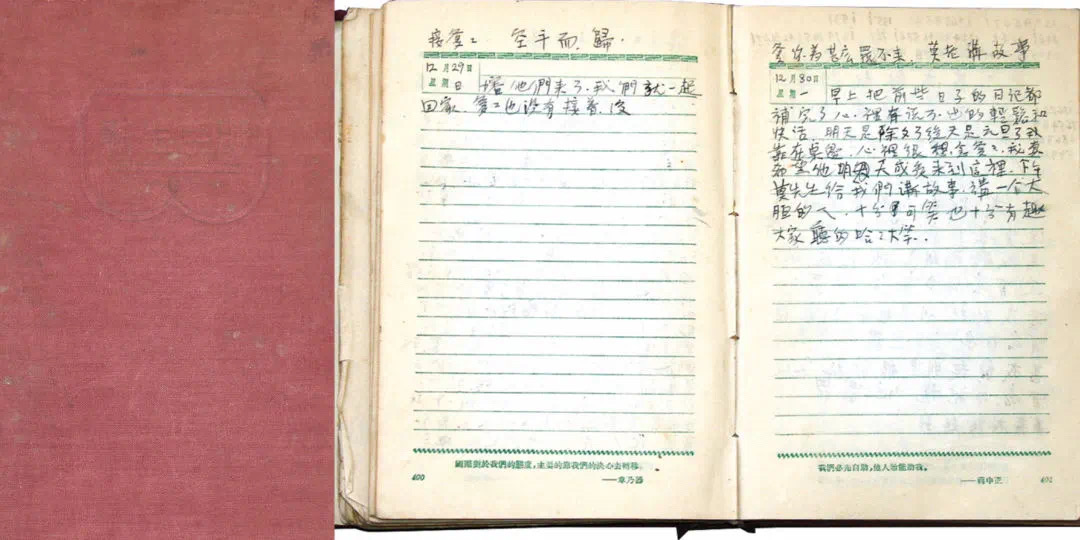 接爹々 空手而歸.
12月29日
星期日 他們來了.我們就一起
回家.爹々也沒有接着.沒
國際對於我們的態度,主要的靠我們的決心去轉移。
——章乃器
400
爹你為甚広還不來 莫老講故事
12月30日
星期一 早上把前些日子的日記都
補完了心裡有說不出的輕鬆和
快活.明天是除夕了後天是元旦了我
靠在桌邊.心裡很想念爹々.我真
希望他明天或後天來到這裡.下午
莫先生給我們講故事.講一个大
胆的人.十分可笑也十分有趣
大家聽的哈々大笑.
我們必先自助,他人始能助我。
——蔣中正
401